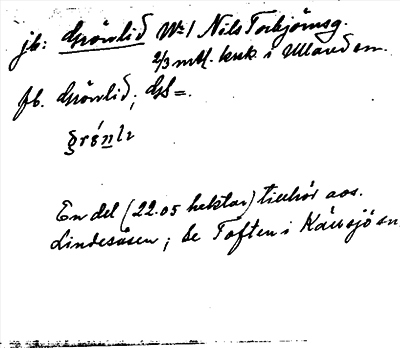 jb: Grönlid № 1 Nils Torbjörnsg.
2/3 mtl. krsk i Ulland sn.
fb. Grönlid, GS=.
En del (22.05 hektar) tillhör avs.
Lindesåsen; se Toften i Kärrsjö sn.